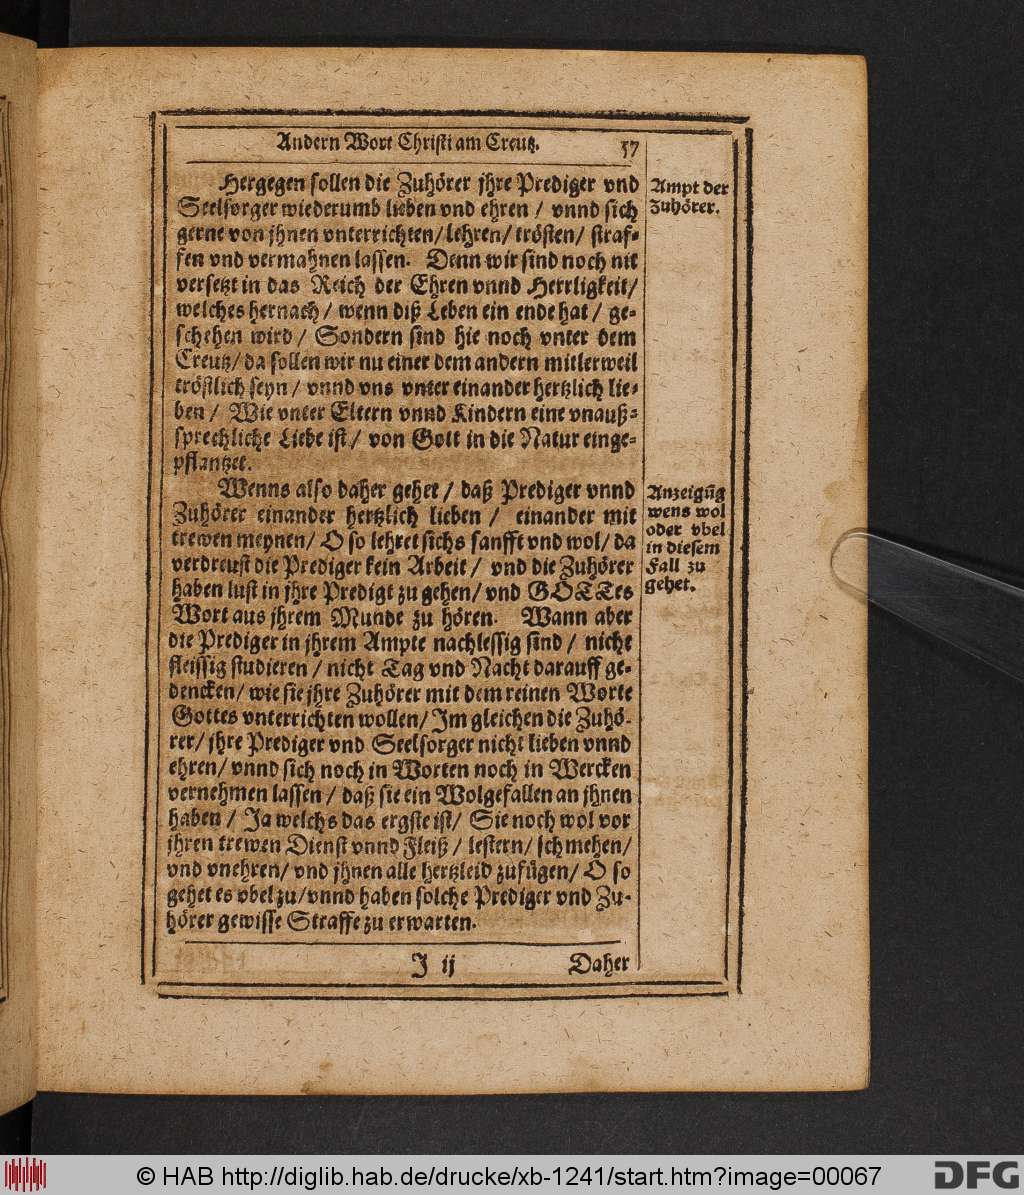 Andern Wort Christi am Creutz. 57
Hergegen sollen die Zuhörer jhre Prediger vnd
Seelsorger wiederumb lieben vnd ehren / vnnd sich
gerne von jhnen vnterrichten/ lehren/ trösten/ straf-
fen vnd vermahnen lassen. Denn wir sind noch nit
versetzt in das Reich der Ehren vnnd Herrligkeit/
welches hernach / wenn diß Leben ein ende hat / ge-
schehen wird / Sondern sind hie noch vnter dem
Creutz/ da sollen wir nu einer dem andern mitlerweil
tröstlich seyn / vnnd vns vnter einander hertzlich lie-
ben / Wie vnter Eltern vnnd Kindern eine vnauß-
sprechliche Liebe ist / von Gott in die Natur einge-
pflantzet.
Wenns also daher gehet / daß Prediger vnnd
Zuhörer einander hertzlich lieben / einander mit
trewen meynen/ O so lehret sichs sanfft vnd wol/ da
verdreust die Prediger kein Arbeit / vnd die Zuhörer
haben lust in jhre Predigt zu gehen/ vnd GOTTes
Wort aus jhrem Munde zu hören. Wann aber
die Prediger in jhrem Ampte nachlessig sind / nicht
fleissig studieren / nicht Tag vnd Nacht darauff ge-
dencken/ wie sie jhre Zuhörer mit dem reinen Worte
Gottes vnterrichten wollen/ Im gleichen die Zuhö-
rer/ jhre Prediger vnd Seelsorger nicht lieben vnnd
ehren/ vnnd sich noch in Worten noch in Wercken
vernehmen lassen / daß sie ein Wolgefallen an jhnen
haben / Ja welchs das ergste ist/ Sie noch wol vor
jhren trewen Dienst vnnd Fleiß / lestern/ schmehen/
vnd vnehren/ vnd jhnen alle hertzleid zufügen/ O so
gehet es vbel zu/ vnnd haben solche Prediger vnd Zu-
hörer gewisse Straffe zu erwarten.
J ij Daher
Ampt der
Zuhörer.
Anzeigūg
wens wol
oder vbel
in diesem
Fall zu
gehet.
© HAB http://diglib.hab.de/drucke/xb-1241/start.htm?image=00067
DFG